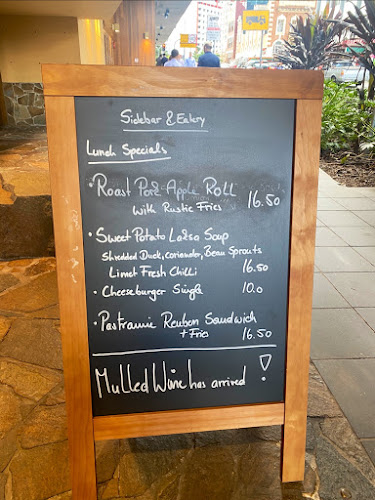 Sidebar & Eatery
Lunch Specials
• Roast Pork Apple Roll
with Rustic Fries 16.50
• Sweet Potato Laksa Soup
Shredded Duck, coriander, Bean Sprouts
Lime & Fresh Chilli 16.50
• Cheeseburger Single 10.0
• Pastramie Reuben Sandwich
+ Fries 16.50
Mulled Wine has arrived !